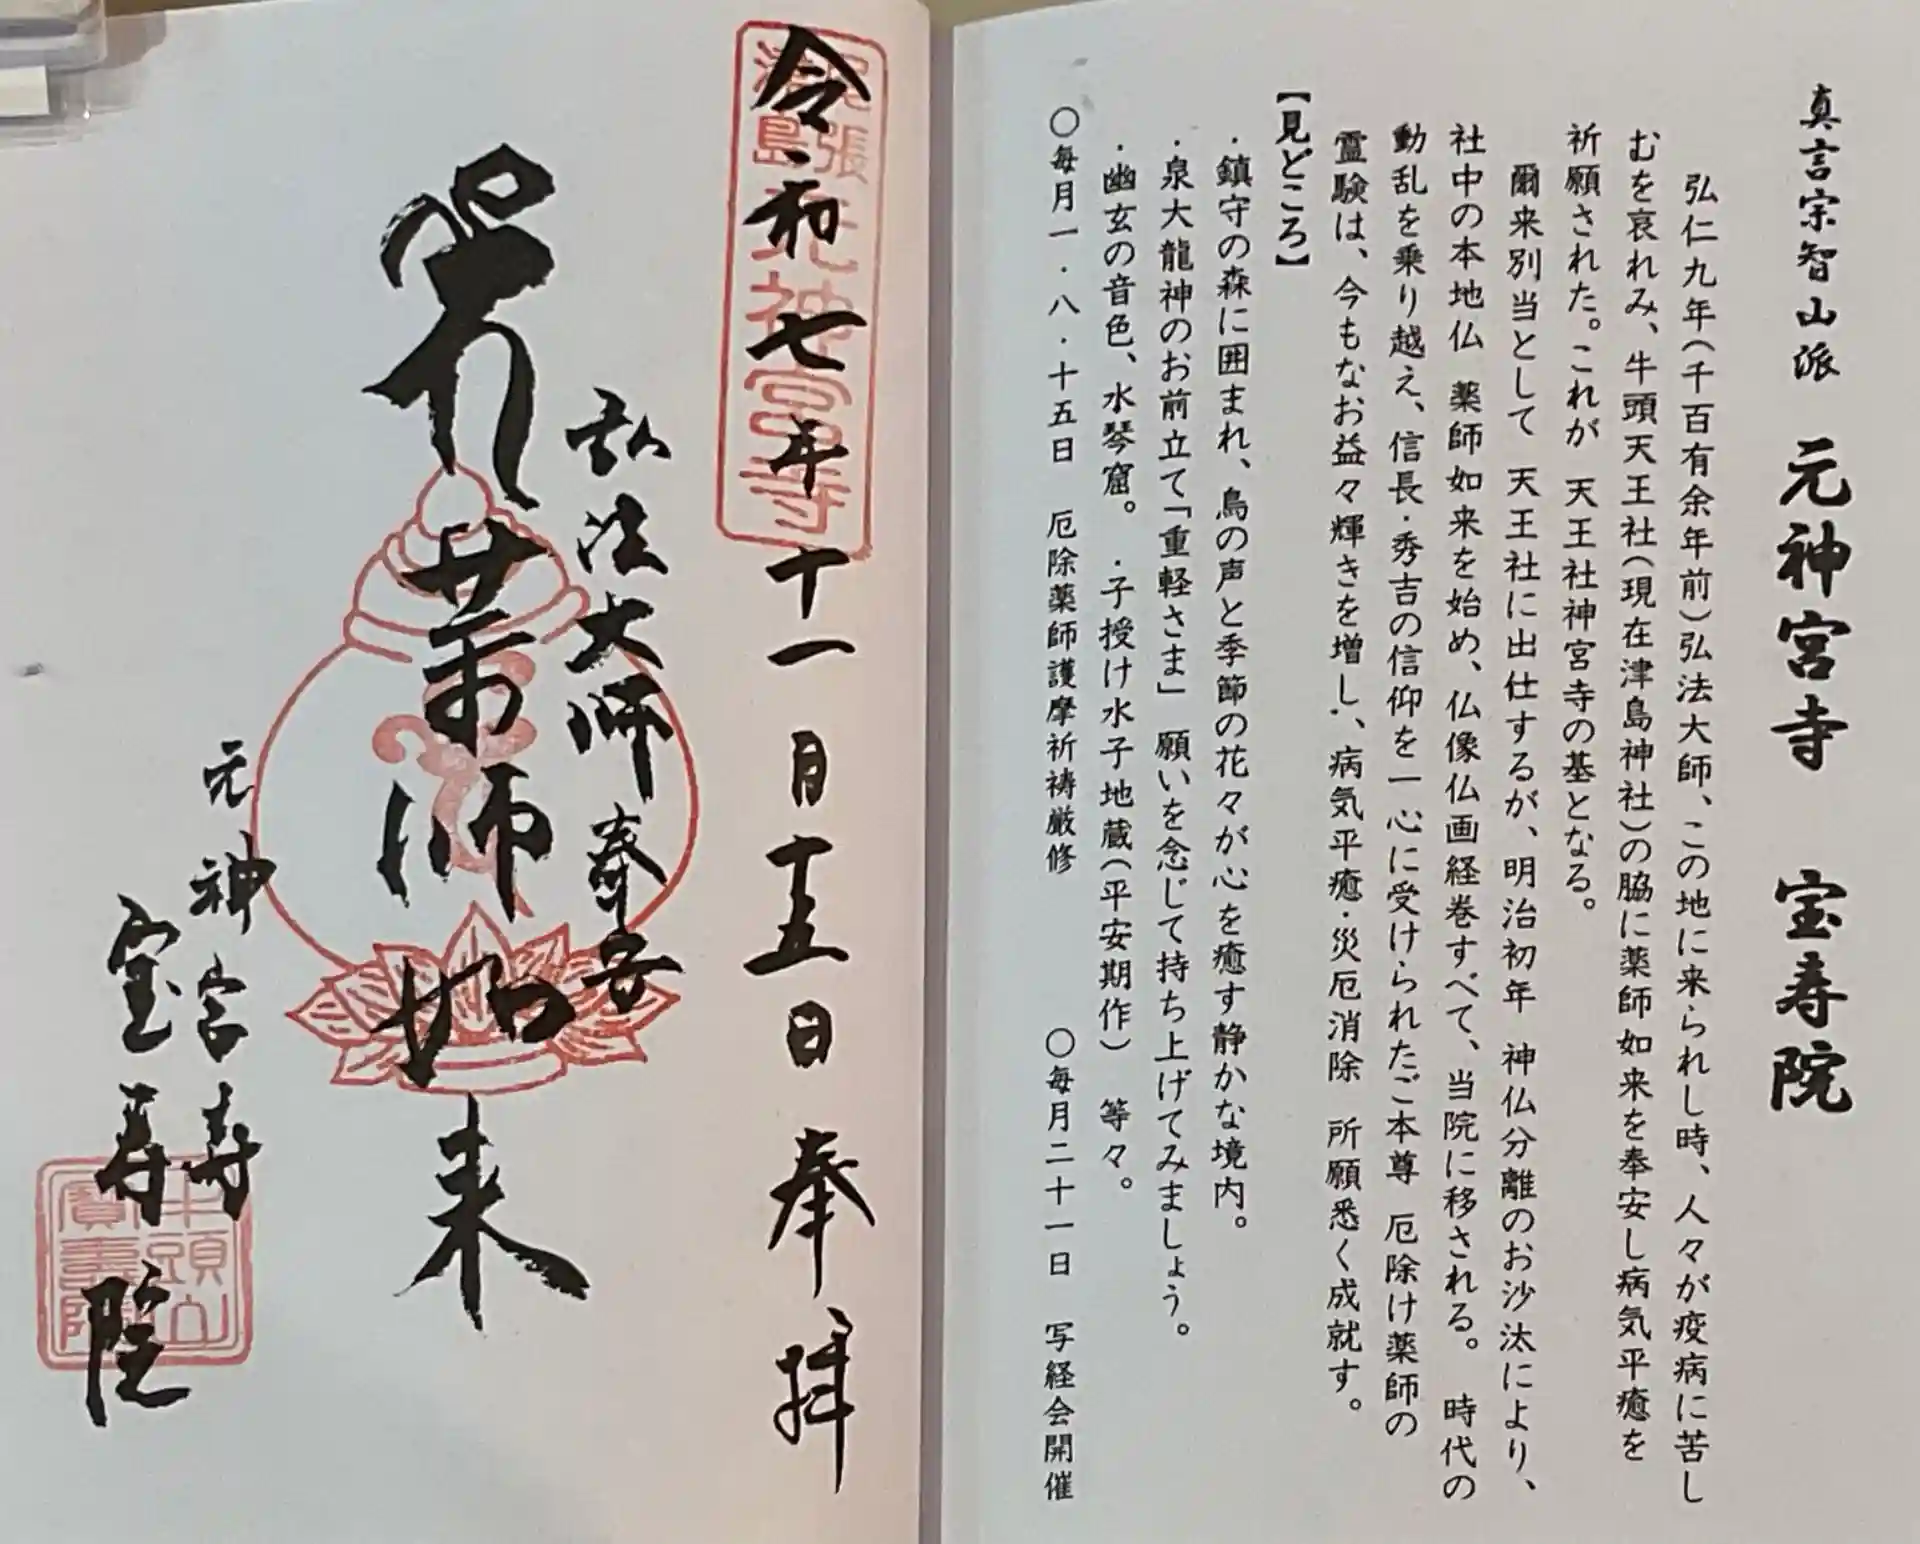 真言宗智山派 元神宮寺 宝寿院
弘仁九年(千百有余年前)弘法大師、この地に来られし時、人々が疫病に苦し
むを哀れみ、牛頭天王社(現在津島神社)の脇に薬師如来を奉安し病気平癒を
祈願された。これが 天王社神宮寺の基となる。
爾来別当として 天王社に出仕するが、明治初年 神仏分離のお沙汰により、
社中の本地仏 薬師如来を始め、仏像仏画経巻すべて、当院に移される。 時代の
動乱を乗り越え、信長・秀吉の信仰を一心に受けられたご本尊 厄除け薬師の
霊験は、今もなお益々輝きを増し、病気平癒・災厄消除 所願悉く成就す。
【見どころ】
・鎮守の森に囲まれ、鳥の声と季節の花々が心を癒す静かな境内。
・泉大龍神のお前立て「重軽さま」 願いを念じて持ち上げてみましょう。
・幽玄の音色、水琴窟。 ・子授け水子地蔵(平安期作) 等々。
〇毎月一・八・十五日 厄除薬師護摩祈祷厳修 〇毎月二十一日 写経会開催
令和七年十一月十五日 奉拝
尾張津島元神宮寺
弘法大師奉安
薬師如来
元神宮寺
宝寿院
牛頭山寶壽院